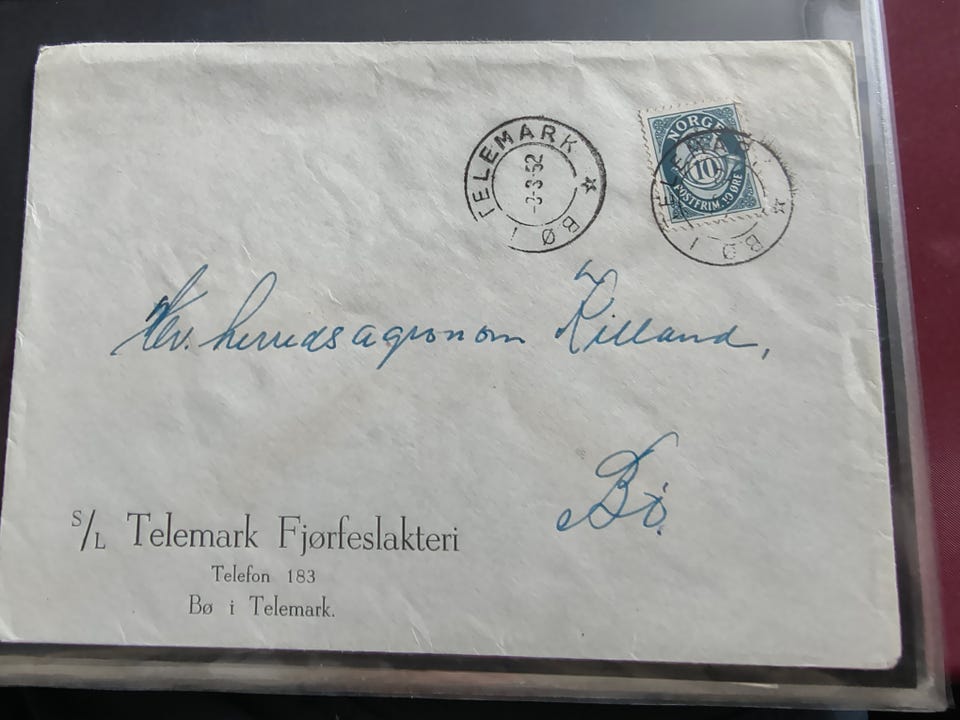 TELEMARK
-3-3-52
BØ I
NORGE
10
POSTFRIM. 10 ØRE
TELEMARK
BØ I
Hr. herredsagronom Killand,
Bø.
S/L Telemark Fjørfeslakteri
Telefon 183
Bø i Telemark.